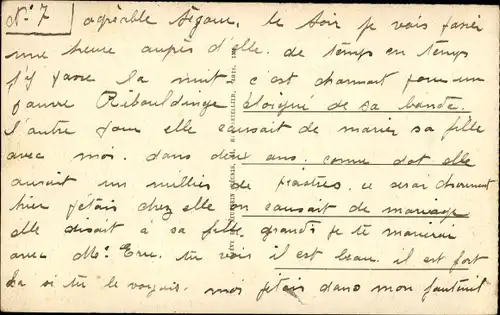 N° 7 agréable séjour, le soir je vais passer
une heure auprès d'elle. de temps en temps
j'y passe la nuit c'est charmant pour un
pauvre Ribouldingue éloigné de sa bande.
l'autre jour elle causait de marier sa fille
avec moi. dans deux ans. comme dot elle
aurait un millier de piastres. ce serai charmant
hier j'étais chez elle on causait de mariage
elle disait à sa fille. grande je te marierai
avec Mr tu vois il est beau. il est fort
La si tu le voyais. moi j'étais dans mon fauteuil